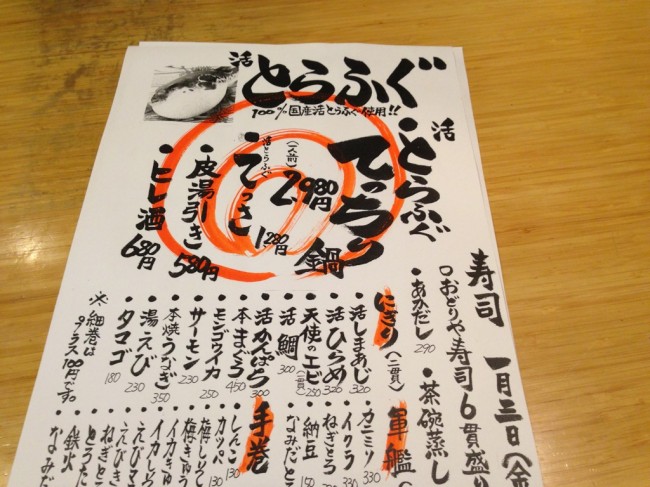 活とらふぐ
100%国産活とらふぐ使用!!
・活とらふぐ
てっちり鍋
(一人前) 2980円
活とらふぐ
・てっさ 1280円
・皮湯引き 580円
・ヒレ酒 680円
寿司 一月三日(金
□おどりや寿司6貫盛り
・あかだし 290
・茶碗蒸し
にぎり(二貫)
・活しまあじ 320
・活ひらめ 320
・天使のエビ(一貫) 250
・活鯛 300
・活かんぱち 300
・本まぐろ 450
・モンゴウイカ 250
・サーモン 230
・本焼うなぎ 350
・湯えび 230
・タマゴ 180
※細巻は
プラス100円です。
軍艦
・カニミソ 330
・イクラ 330
・ねぎとろ
・納豆 150
・なみだと
手巻
・しんこ 130
・カッパ 130
・梅しそ
・梅きゅう
・イカきゅう
・イカしそ
・えびマヨ
・えびき
・とろた
・ねぎと
・鉄火
・なみだ